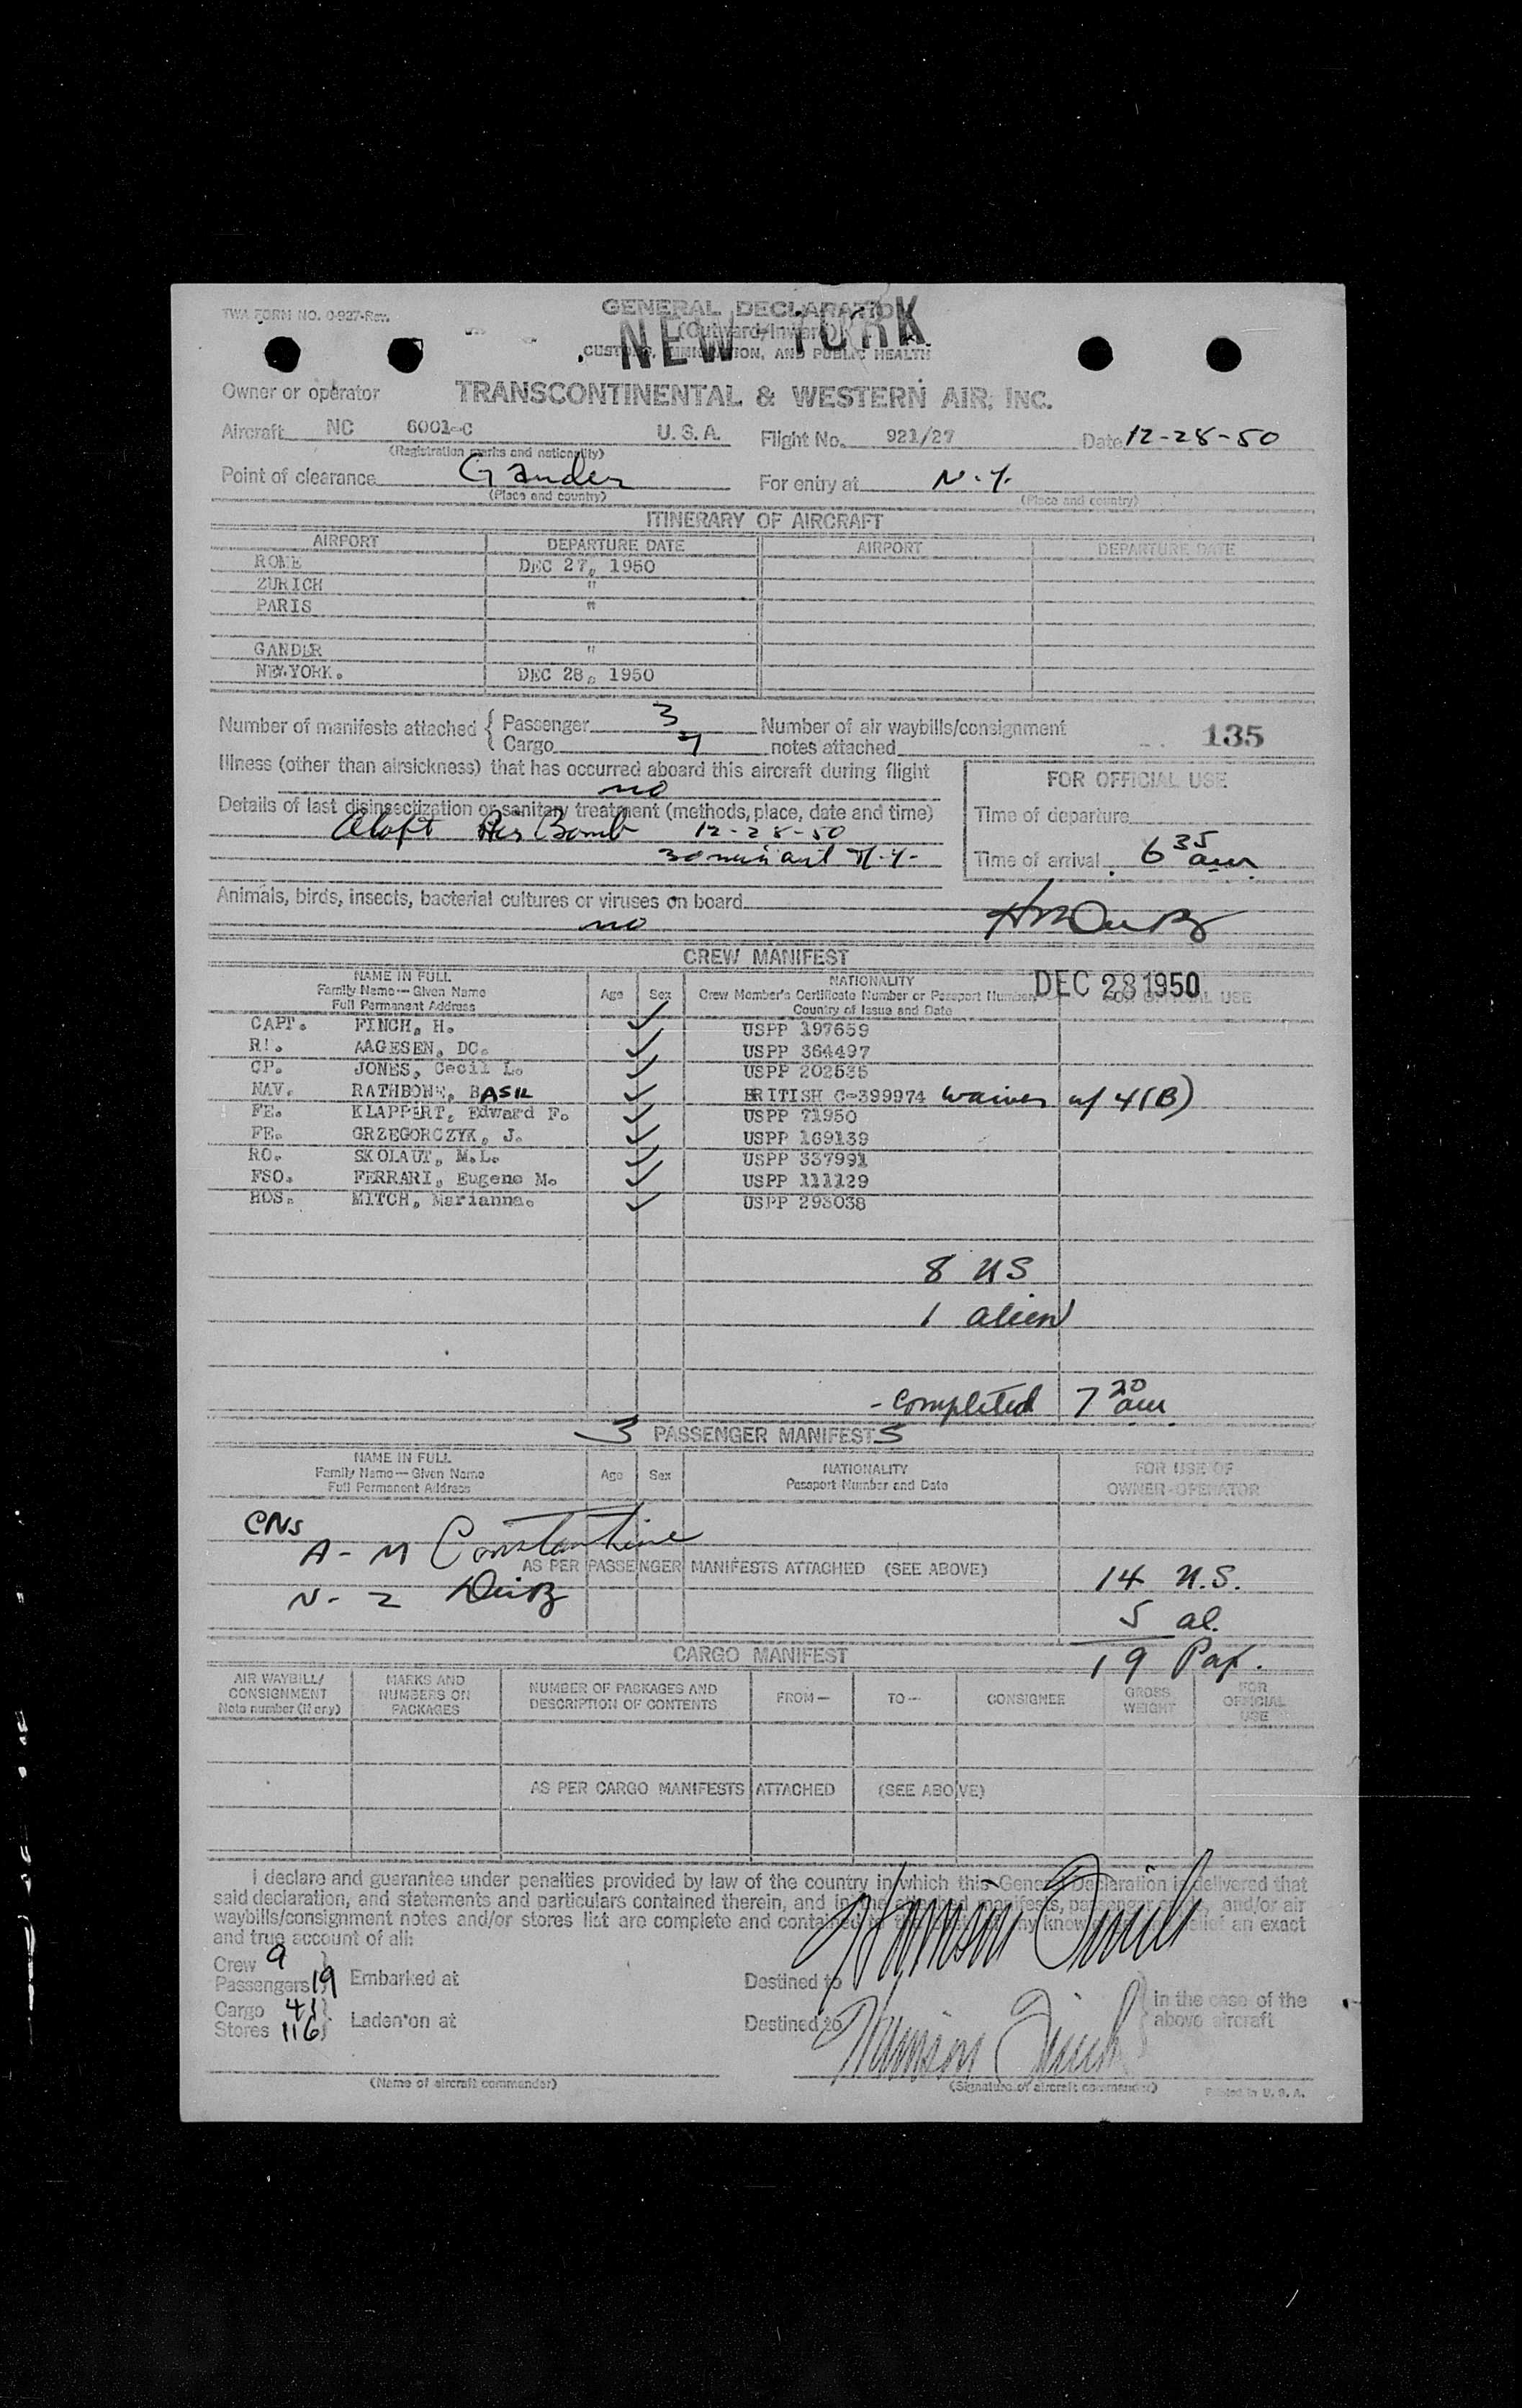 TWA FORM NO. O-927-Rev.
GENERAL DECLARATION
(Outward/Inward)
NEW YORK
CUSTOMS, IMMIGRATION, AND PUBLIC HEALTH
Owner or operator TRANSCONTINENTAL & WESTERN AIR, INC.
Aircraft NC 6001-C U.S.A. Flight No. 921/27 Date 12-28-50
(Registration marks and nationality)
Point of clearance Gander For entry at N.Y.
(Place and country) (Place and country)
ITINERARY OF AIRCRAFT
AIRPORT DEPARTURE DATE AIRPORT DEPARTURE DATE
ROME DEC 27, 1950
ZURICH "
PARIS "
GANDER "
NEW.YORK. DEC 28, 1950
Number of manifests attached { Passenger 3 Number of air waybills/consignment
Cargo 7 notes attached 135
Illness (other than airsickness) that has occurred aboard this aircraft during flight
no
FOR OFFICIAL USE
Details of last disinsectization or sanitary treatment (methods, place, date and time)
Aloft Aer Bomb 12-28-50
30 min out N.Y.
Time of departure
Time of arrival 6 35 am
Animals, birds, insects, bacterial cultures or viruses on board
no
CREW MANIFEST
NAME IN FULL
Family Name — Given Name
Full Permanent Address
Age Sex
NATIONALITY
Crew Member's Certificate Number or Passport Number
Country of Issue and Date
DEC 28 1950
FOR OFFICIAL USE
CAPT. FINCH, H. ✓ USPP 197659
AAGESEN, DC. ✓ USPP 364497
CP. JONES, Cecil L. ✓ USPP 202535
NAV. RATHBONE, BASIL ✓ BRITISH C-399974 waiver w/ 4(B)
FE. KLAPPERT, Edward F. ✓ USPP 71950
FE. GRZEGORCZYK, J. ✓ USPP 169139
RO. SKOLAUT, M.L. ✓ USPP 337991
FSO. FERRARI, Eugene M. ✓ USPP 111129
HOS. MITCH, Marianna. ✓ USPP 293038
8 US
1 alien
- completed 7 20 am
3 PASSENGER MANIFESTS
NAME IN FULL
Family Name — Given Name
Full Permanent Address
Age Sex
NATIONALITY
Passport Number and Date
FOR USE OF
OWNER-OPERATOR
CNS
A - M Constantine
AS PER PASSENGER MANIFESTS ATTACHED (SEE ABOVE)
14 U.S.
N - Z
5 al.
CARGO MANIFEST
19 Pax.
AIR WAYBILL/
CONSIGNMENT
Note number (if any)
MARKS AND
NUMBERS ON
PACKAGES
NUMBER OF PACKAGES AND
DESCRIPTION OF CONTENTS
FROM— TO— CONSIGNEE
GROSS
WEIGHT
FOR
OFFICIAL
USE
AS PER CARGO MANIFESTS ATTACHED (SEE ABOVE)
I declare and guarantee under penalties provided by law of the country in which this General Declaration is delivered that
said declaration, and statements and particulars contained therein, and in the attached manifests, passenger and/or air
waybills/consignment notes and/or stores list are complete and contained to my knowledge belief an exact
and true account of all:
Crew 9
Passengers 19 } Embarked at Destined to
Harrison Finch
Cargo 41
Stores 116 } Laden on at Destined to
Harrison Finch
} in the case of the
above aircraft
(Name of aircraft commander) (Signature of aircraft commander) Printed in U. S. A.